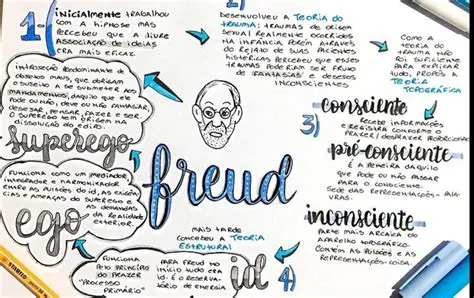 1-
inicialmente trabalhou
com a hipnose mas
percebeu que a livre
associação de ideias
era mais eficaz.
desenvolveu a teoria do
trauma: traumas de origem
sexual realmente ocorridos
na infância porém através
do relato de suas pacientes
histéricas percebeu que esses
traumas podiam ser fruto
de fantasias e desejos
inconscientes
como a
teoria do
trauma não
foi suficiente
para explicar
tudo, propôs a
teoria
topográfica
introjeção predominante de
objetos maus, que obrigam
o sujeito a se submeter aos
mandamentos, daquilo que ele
pode ou não, deve ou não fantasiar,
desejar, pensar, fazer e ser.
o superego tem origem na
dissolução do édipo.
superego
freud
3)
consciente
recebe informações
e registra conforme o
prazer/desprazer
pré-consciente
é a peneira daquilo
que pode ou não passar
para o consciente.
sede das representações-pala-
vras.
inconsciente
parte mais arcaica do
aparelho topográfico.
contém as pulsões e as
representações-coisa.
funciona como um mediador,
integrador e harmonizador
entre as pulsões do id, as exigên-
cias e ameaças do superego e
as demandas
da realidade
exterior.
ego
mais tarde
concebeu a teoria
estrutural
funciona
pelo princípio
do prazer
"processo
primário"
para freud no
início tudo era
id: é o reserva-
tório de energia
id
4)
STABILO